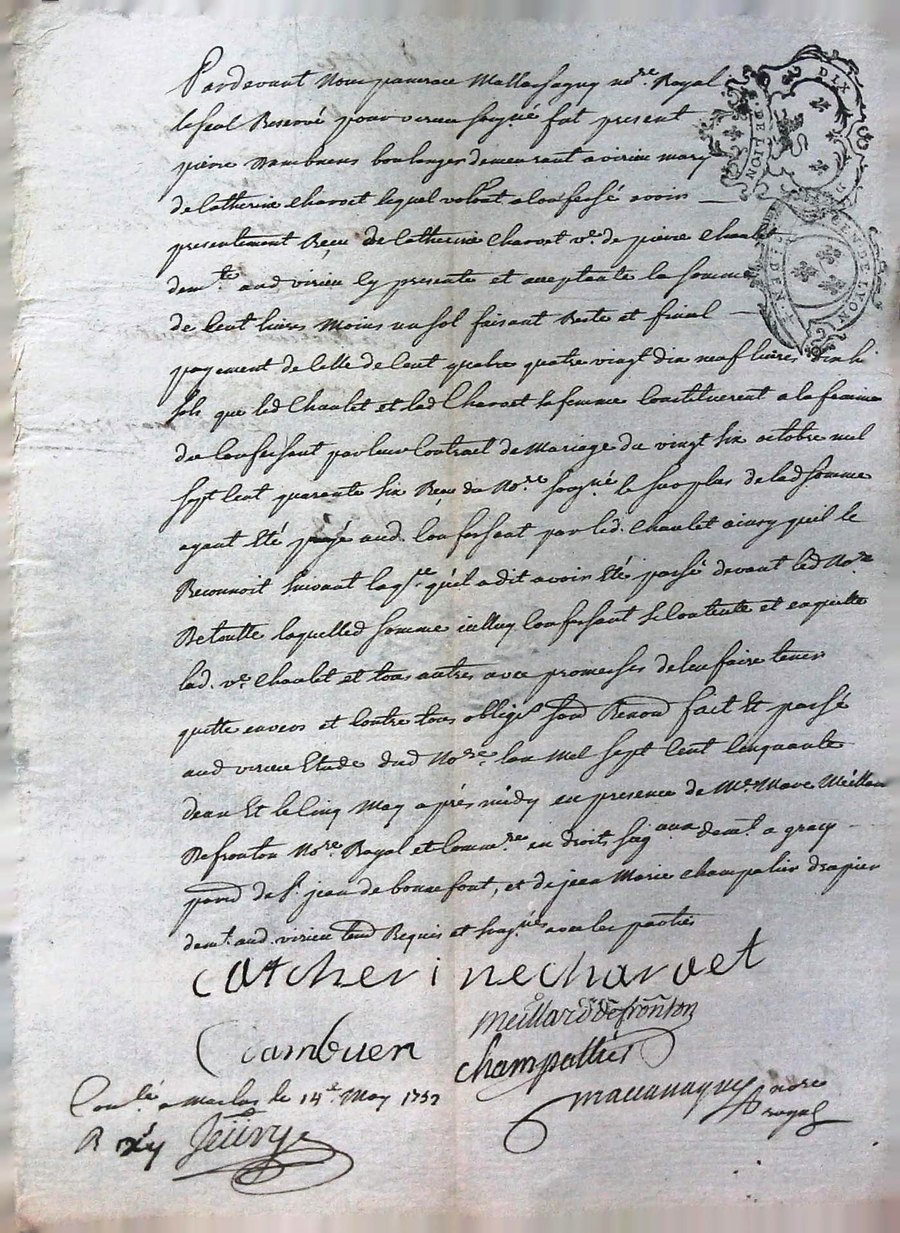 Pardevant Nous pancrace Mallassagny no.re Royal
le seul Reservé pour virieu sousg.né fut present
pierre Dambuens boulanger demeurant a virieu mary
de Catherine Charvet lequel volont a Confessé avoir
presentement Reçu de Catherine Charvet v.e de pierre Chaulet
dem.te aud virieu Cy presente et acceptante la somme
de Cent livres Moins un sol faisant Reste et final
payement de Celle de Cent quatre vingt dix neuf livres dix
sols que led Chaulet et lad Charvet sa femme Constituerent a la femme
du Confessant par leur Contract de Mariage du vingt six octobre mil
sept Cent quarante six Reçu du No.re sousg.né le surplus de lad somme
ayant Eté payé aud. Confessant par led. Chaulet ainsy qu'il le
Reconnoit suivant la q.ce qu'il a dit avoir Eté passé devant led No.re
De toutte laquelled somme icelluy Confessant se Contente et en quitte
lad. v.e Chaulet et tous autres avec promesses de l'en faire tenir
quitte envers et Contre tous oblig.t soum Renon.d fait Et passé
aud virieu Etude dud No.re l'an Mil sept Cent Cinquante
deux Et le Cinq May après midy en presence de M.e Marc Meillard
Defronton No.re Royal et Comm.re en droits seig.aux dem.t a
de S.t jean de bonnefont, et de jean Marie Champalier drapier
dem.t aud. virieu tem Requis et sousg.nés avec les parties
catherine charvet
meillard defronton
Dambuen
champallier
nore royal
Con.lé a Maclas le 14.e May 1752
R
DIX
DE LION
GEN. DE LYON